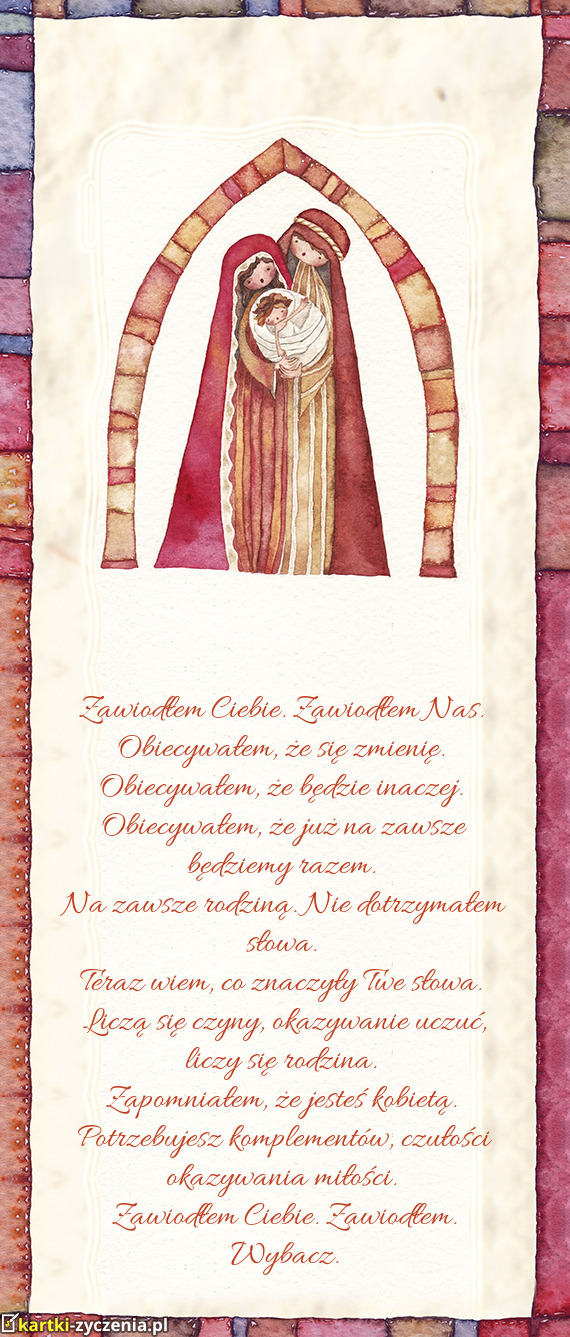 Zawiodłem Ciebie. Zawiodłem Nas.
Obiecywałem, że się zmienię.
Obiecywałem, że będzie inaczej.
Obiecywałem, że już na zawsze
będziemy razem.
Na zawsze rodziną. Nie dotrzymałem
słowa.
Teraz wiem, co znaczyły Twe słowa.
Liczą się czyny, okazywanie uczuć,
liczy się rodzina.
Zapomniałem, że jesteś kobietą.
Potrzebujesz komplementów, czułości
okazywania miłości.
Zawiodłem Ciebie. Zawiodłem.
Wybacz.
kartki-zyczenia.pl